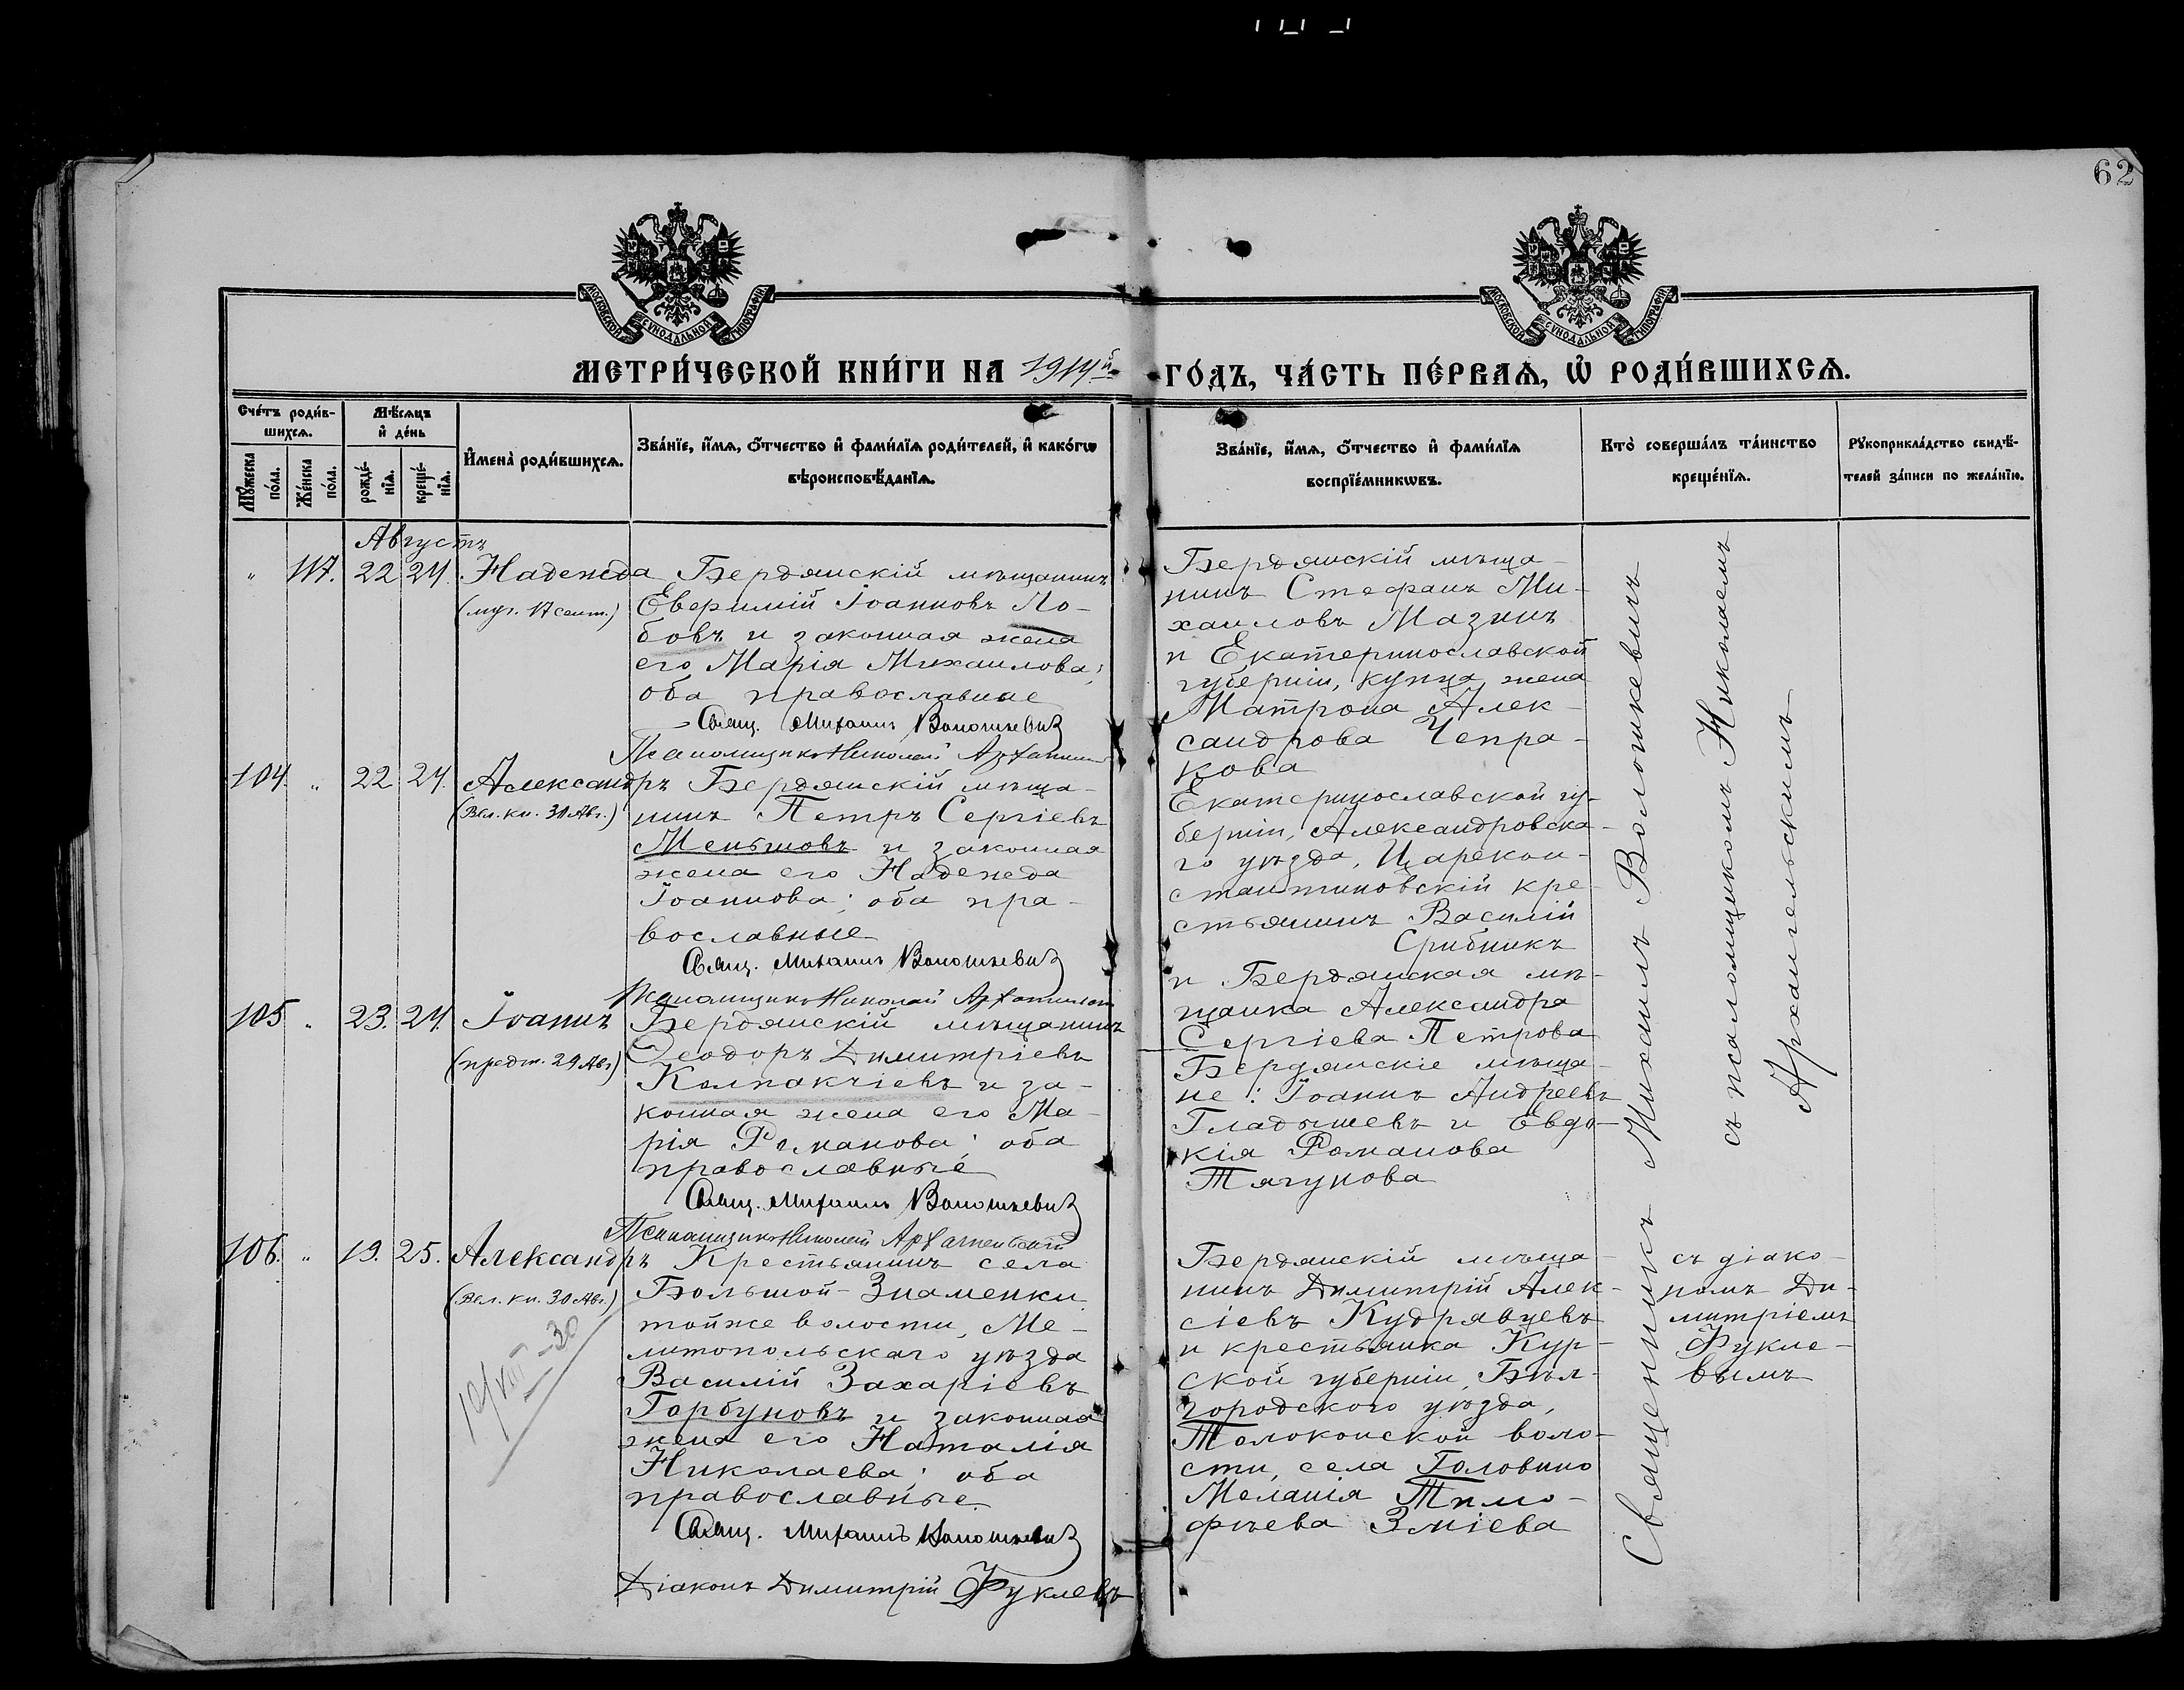 62
МОСКОВСКОЙ СѴНОДАЛЬНОЙ ТИПОГРАФІИ
МОСКОВСКОЙ СѴНОДАЛЬНОЙ ТИПОГРАФІИ
МЕТРИ́ЧЕСКОЙ КНИ́ГИ НА 1914й ГО́ДЪ, ЧА́СТЬ ПЕ́РВАѦ, Ѡ РОДИ́ВШИХСѦ.
Сче́тъ роди́в-
шихсѧ.
Мꙋ́жеска по́ла.
Же́нска по́ла.
Мѣ́сѧцъ
и҆ де́нь
рожде́-
нїѧ.
креще́-
нїѧ.
И҆мена̀ роди́вшихсѧ.
Зва́нїе, и҆́мѧ, ѻ҆́тчество и҆ фами́лїѧ роди́телей, и҆ како́гѡ
вѣроисповѣ́данїѧ.
Зва́нїе, и҆́мѧ, ѻ҆́тчество и҆ фами́лїѧ
воспрїе́мникѡвъ.
Кто̀ соверша́лъ та́инство
креще́нїѧ.
Рꙋкоприкла́дство свидѣ́-
телей за́писи по жела́нїю.
Августъ
" 117. 22 24 Надежда
(муч. 17 сент.)
Бердянскій мѣщанинъ
Евѳимій Іоанновъ Ло-
бовъ и законная жена
его Марія Михаилова;
оба православные
Свящ. Михаилъ Волошкевичъ
Псаломщикъ Николай Архангельскій
Бердянскій мѣща-
нинъ Стефанъ Ми-
хаиловъ Мазинъ
и Екатеринославской
губерніи, купца жена
Матрона Алек-
сандрова Чепра-
кова
104. " 22 24. Александръ
(Вел. кн. 30 Авг.)
Бердянскій мѣща-
нинъ Петръ Сергіевъ
Меньшовъ и законная
жена его Надежда
Іоаннова; оба пра-
вославные
Свящ. Михаилъ Волошкевичъ
Псаломщикъ Николай Архангельскій
Екатеринославской гу-
берніи, Александровска-
го уѣзда, Царекон-
стантиновскій кре-
стьянинъ Василій
Срибникъ
и Бердянская мѣ-
щанка Александра
Сергіева Петрова
105 " 23. 24. Іоаннъ
(предт. 29 Авг.)
Бердянскій мѣщанинъ
Ѳеодоръ Димитріевъ
Колпакчіевъ и за-
конная жена его Ма-
рія Романова; оба
православные
Свящ. Михаилъ Волошкевичъ
Псаломщикъ Николай Архангельскій
Бердянскіе мѣща-
не: Іоаннъ Андреевъ
Гладышевъ и Евдо-
кія Романова
Тягунова
106. " 19. 25. Александръ
(Вел. кн. 30 Авг.)
Крестьянинъ села
Большой-Знаменки
тойже волости, Ме-
литопольскаго уѣзда
Василій Захаріевъ
Горбуновъ и законная
жена его Наталія
Николаева; оба
православные
Свящ. Михаилъ Волошкевичъ
Діаконъ Димитрій Фуклевъ
Бердянскій мѣща-
нинъ Димитрій Алек-
сіевъ Кудрявцевъ
и крестьянка Кур-
ской губерніи, Бѣл-
городского уѣзда,
Толоконской воло-
сти, села Головино
Меланія Тимо-
фѣева Зміева
Священникъ Михаилъ Волошкевичъ
съ псаломщикомъ Николаемъ
Архангельскимъ
съ діако-
номъ Ди-
митріемъ
Фукле-
вымъ